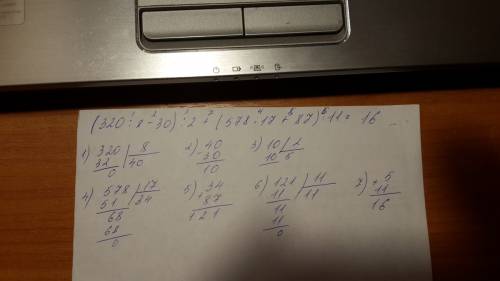 (320 : 8 - 30) : 2 + (578 : 17 + 87) : 11 = 16
1) 320 | 8
32 | 40
0
2) 40
- 30
10
3) 10 | 2
10 | 5
4) 578 | 17
51 | 34
68
68
0
5) 34
+ 87
121
6) 121 | 11
11 | 11
11
11
0
7) + 5
11
16